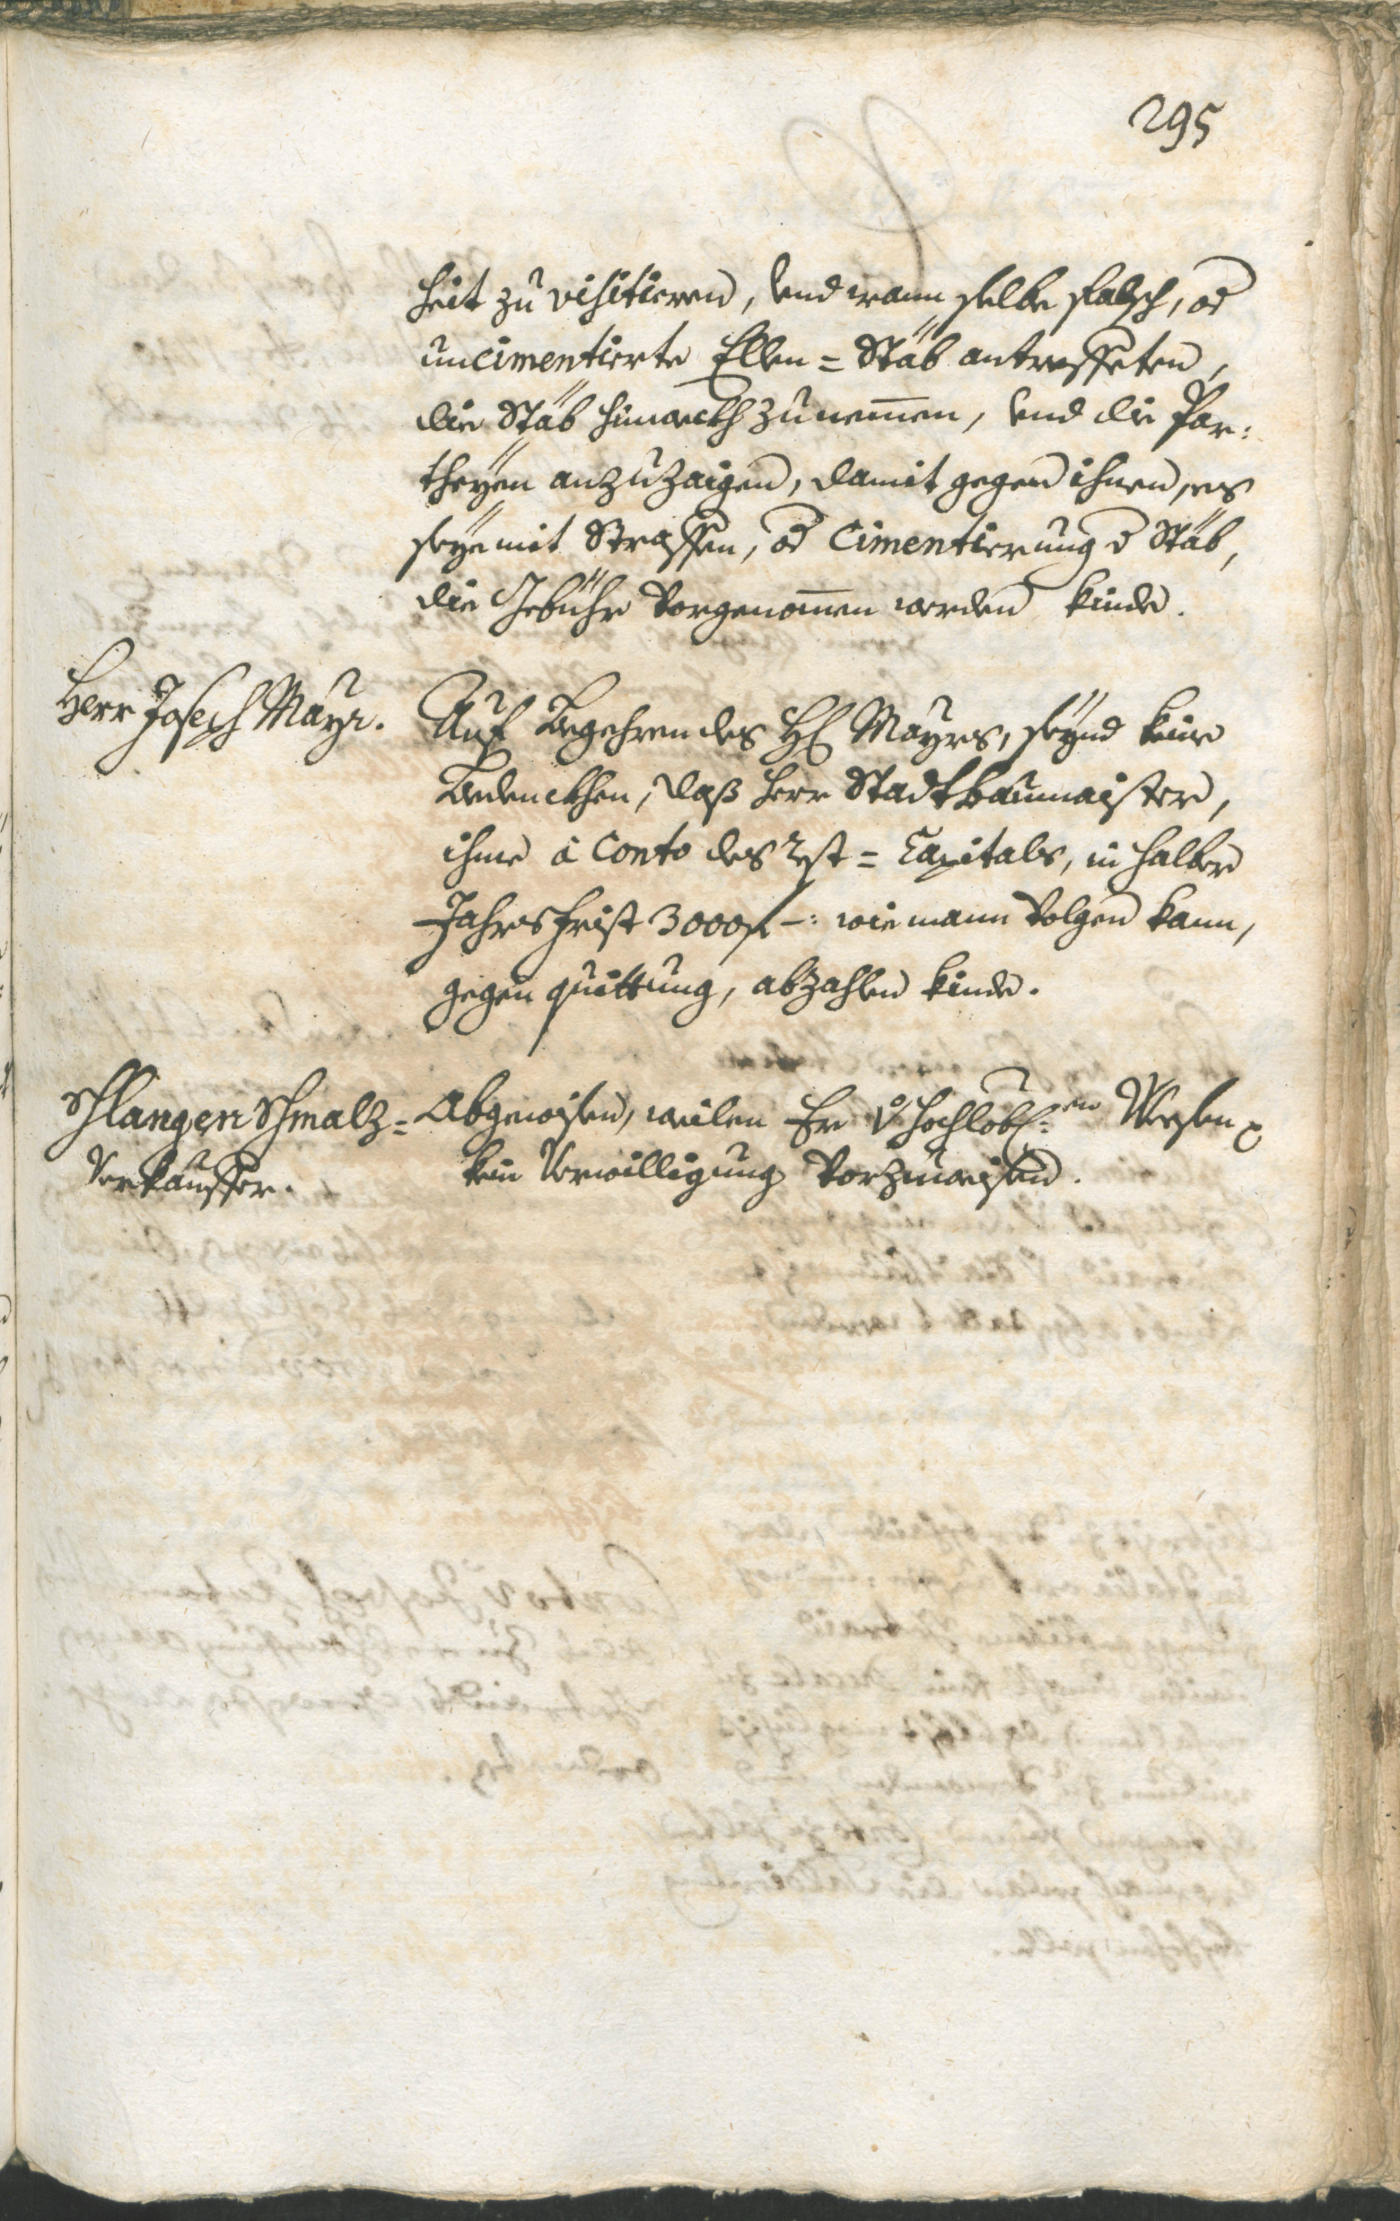 295
heit zu visitieren, vnd wann selbe falsch, od
uncimentierte Ellen=Stäb antreffeten,
die Stäb hinweckh zunem̄en, vnd die Par:
theyen anzuzaigen, damit gegen ihnen, es
seye mit Straffen, od Cimentierung d Stäb,
die Gebühr vorgenom̄en werden kinde.
Herr Joseph Mayr.
Auf Begehren des H: Mayrs, seynd keine
Bedenckhen, daß Herr Stadtbaumaister,
ihme à Conto des rest=Capitals, in halber
Jahrs Frist 3000 f –: wie mann volgen kann,
gegen quittung, abzahlen kinde.
Schlangen Schmalz=
Verkauffer.
Abgewisen, weilen Er v: hochlöbl:en Weesen
kein Verwilligung vorzuweisen.